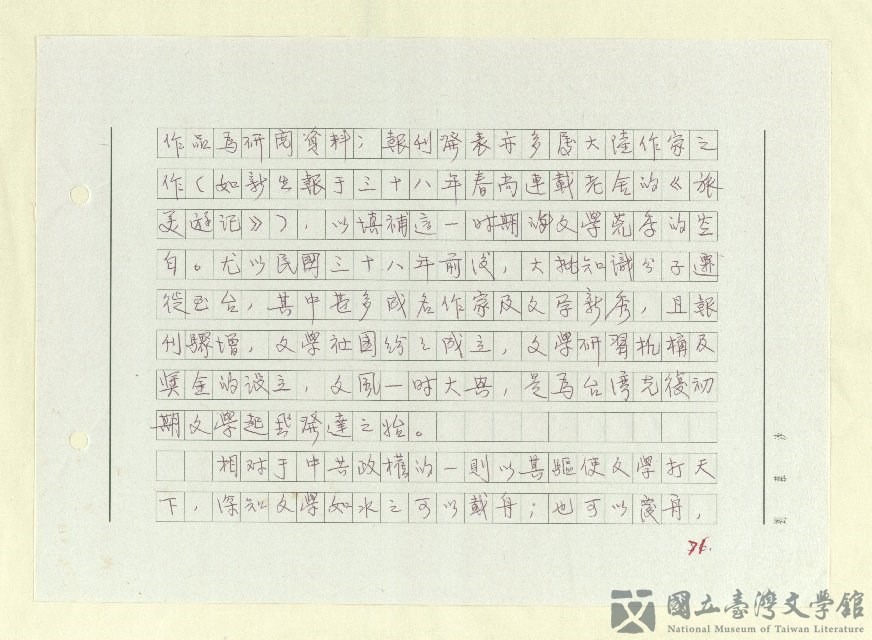 作品為研閱資料；報刊發表亦多屬大陸作家之
作（如新生報于三十八年春尚連載老舍的《旅
美遊记》），以填補這一时期的文學荒季的空
白。尤以民國三十八年前後，大批知識分子遷
徙至台，其中甚多成名作家及文学新秀，且報
刊驟增，文學社團纷纷成立，文學研習机構及
奬金的设立，文風一时大興，是為台湾光復初
期文學起飛發達之始。
相对于中共政權的一則以其驅使文學打天
下，深知文學如水之可以載舟；也可以覆舟，
76.
國立臺灣文學館
National Museum of Taiwan Literature